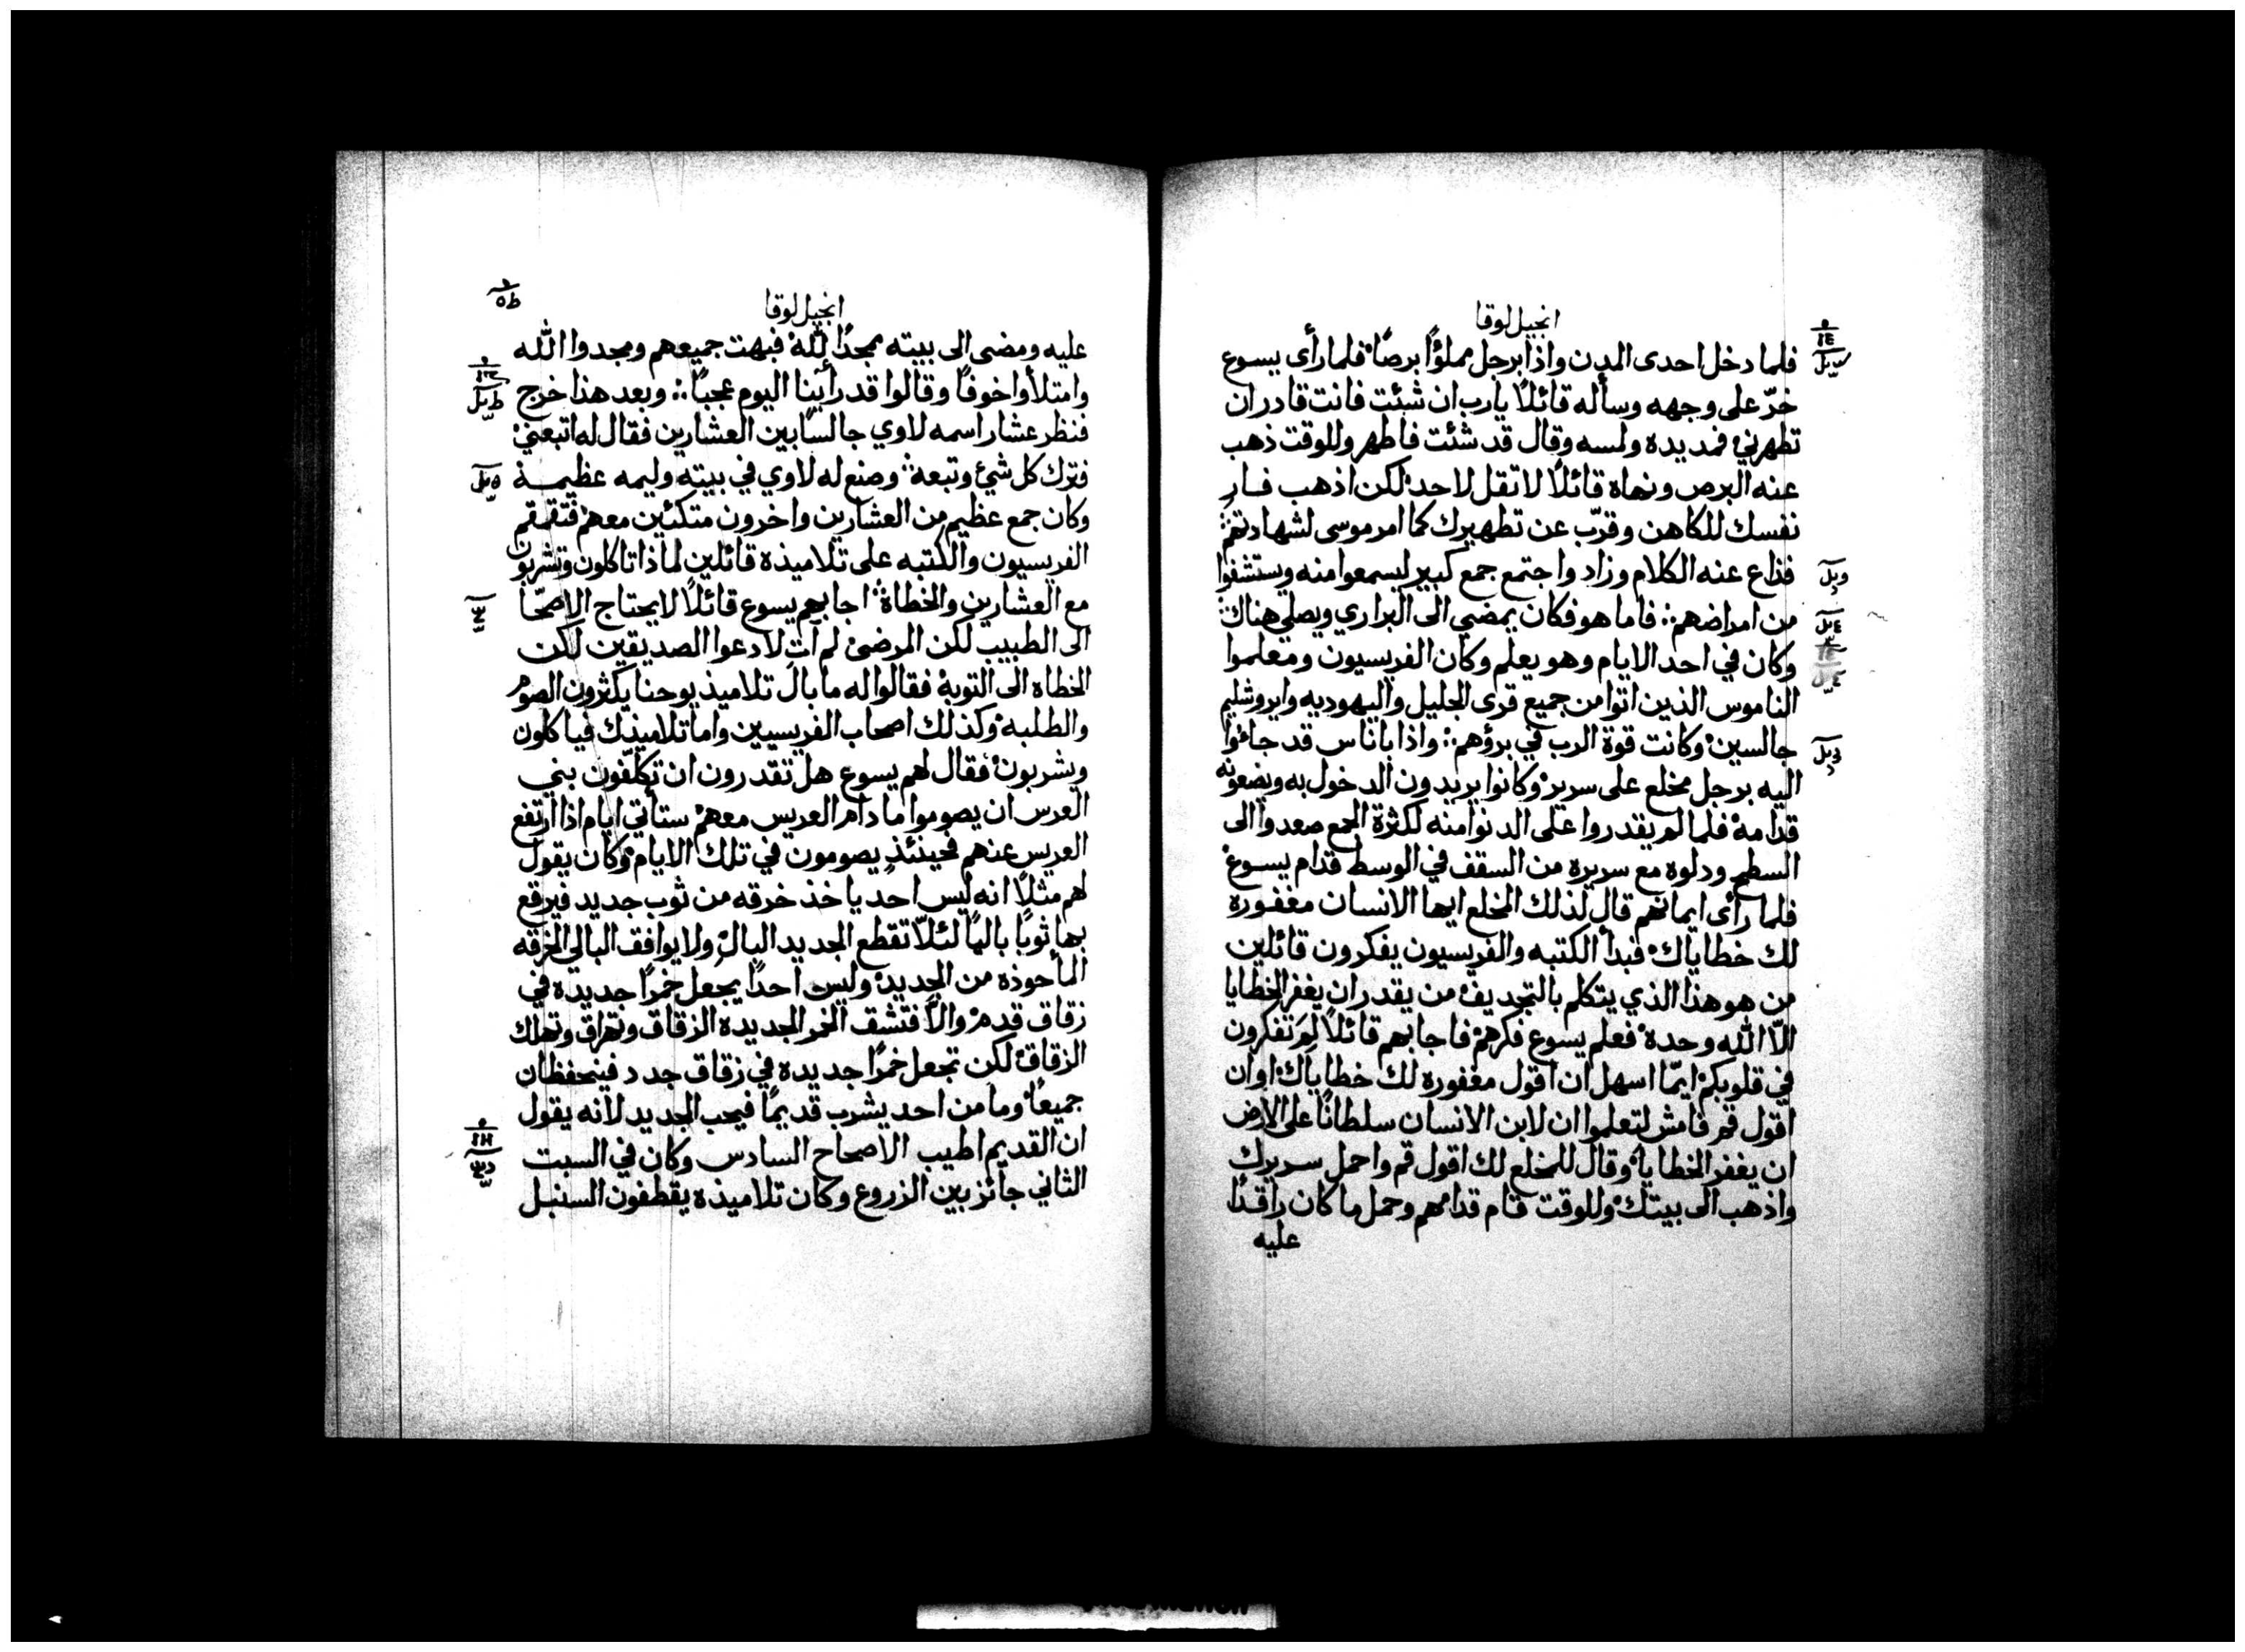 انجيل لوقا
فلما دخل احدى المدن واذا برجل مملوًا برصًا فلما رأى يسوع
خرّ على وجهه وسأله قائلًا يارب ان شئت فانت قادر ان
تطهرني فمد يده ولمسه وقال قد شئت فاطهر وللوقت ذهب
عنه البرص ونهاه قائلًا لا تقل لاحد لكن اذهب فار
نفسك للكاهن وقرّب عن تطهيرك كما امر موسى لشهادتهم
فذاع عنه الكلام وزاد واجتمع جمع كبير ليسمعوا منه ويستشفوا
من امراضهم فاما هو فكان يمضي الى البراري ويصلي هناك
وكان في احد الايام وهو يعلم وكان الفريسيون ومعلموا
الناموس الذين اتوا من جميع قرى الجليل واليهوديه وايروشليم
جالسين وكانت قوة الرب في برؤهم واذا باناس قد جاءوا
اليه برجل مخلع على سرير وكانوا يريدون الدخول به ويضعونه
قدامه فلما لم يقدروا على الدنوا منه لكثرة الجمع صعدوا الى
السطح ودلوه مع سريره من السقف في الوسط قدام يسوع
فلما رأى ايمانهم قال لذلك المخلع ايها الانسان مغفوره
لك خطاياك فبدأ الكتبه والفريسيون يفكرون قائلين
من هو هذا الذي يتكلم بالتجديف من يقدر ان يغفر الخطايا
الّا الله وحده فعلم يسوع فكرهم فاجابهم قائلًا لِمَ تفكرون
في قلوبكم ايّما اسهل ان اقول مغفوره لك خطاياك او ان
اقول قم فامش لتعلموا ان لابن الانسان سلطانًا على الارض
ان يغفر الخطايا وقال للمخلع لك اقول قم واحمل سريرك
واذهب الى بيتك وللوقت قام قدامهم وحمل ما كان راقدًا
عليه
انجيل لوقا
عليه ومضى الى بيته ممجدًا لله فبهت جميعهم ومجدوا الله
وامتلأوا خوفًا وقالوا قد رأينا اليوم عجبًا وبعد هذا خرج
فنظر عشار اسمه لاوي جالسًا بين العشارين فقال له اتبعني
فترك كل شئ وتبعه وصنع له لاوي في بيته وليمه عظيمة
وكان جمع عظيم من العشارين واخرون متكئين معهم فتقمقم
الفريسيون والكتبه على تلاميذه قائلين لماذا تاكلون وتشربون
مع العشارين والخطاة اجابهم يسوع قائلًا لا يحتاج الاصحّا
الى الطبيب لكن المرضى لم آتِ لادعوا الصديقين لكن
الخطاه الى التوبة فقالوا له ما بال تلاميذ يوحنا يكثرون الصوم
والطلبه وكذلك اصحاب الفريسيين واما تلاميذك فياكلون
ويشربون فقال لهم يسوع هل تقدرون ان تكلّفون بني
العرس ان يصوموا ما دام العريس معهم ستأتي ايام اذا ارتفع
العريس عنهم فحينئذ يصومون في تلك الايام وكان يقول
لهم مثلًا انه ليس احد ياخذ خرقه من ثوب جديد فيرقع
بها ثوبًا باليًا لئلّا تقطع الجديد البال ولا يوافق البالي الخرقه
المأخوذه من الجديد وليس احدًا يجعل خمرًا جديده في
زقاق قدم والّا فتشف الخمر الجديده الزقاق وتهراق وتهلك
الزقاق لكن تجعل خمرًا جديده في زقاق جدد فينحفظان
جميعًا وما من احد يشرب قديمًا فيحب الجديد لأنه يقول
ان القديم اطيب الاصحاح السادس وكان في السبت
الثاني جائز بين الزروع وكان تلاميذه يقطفون السنبل